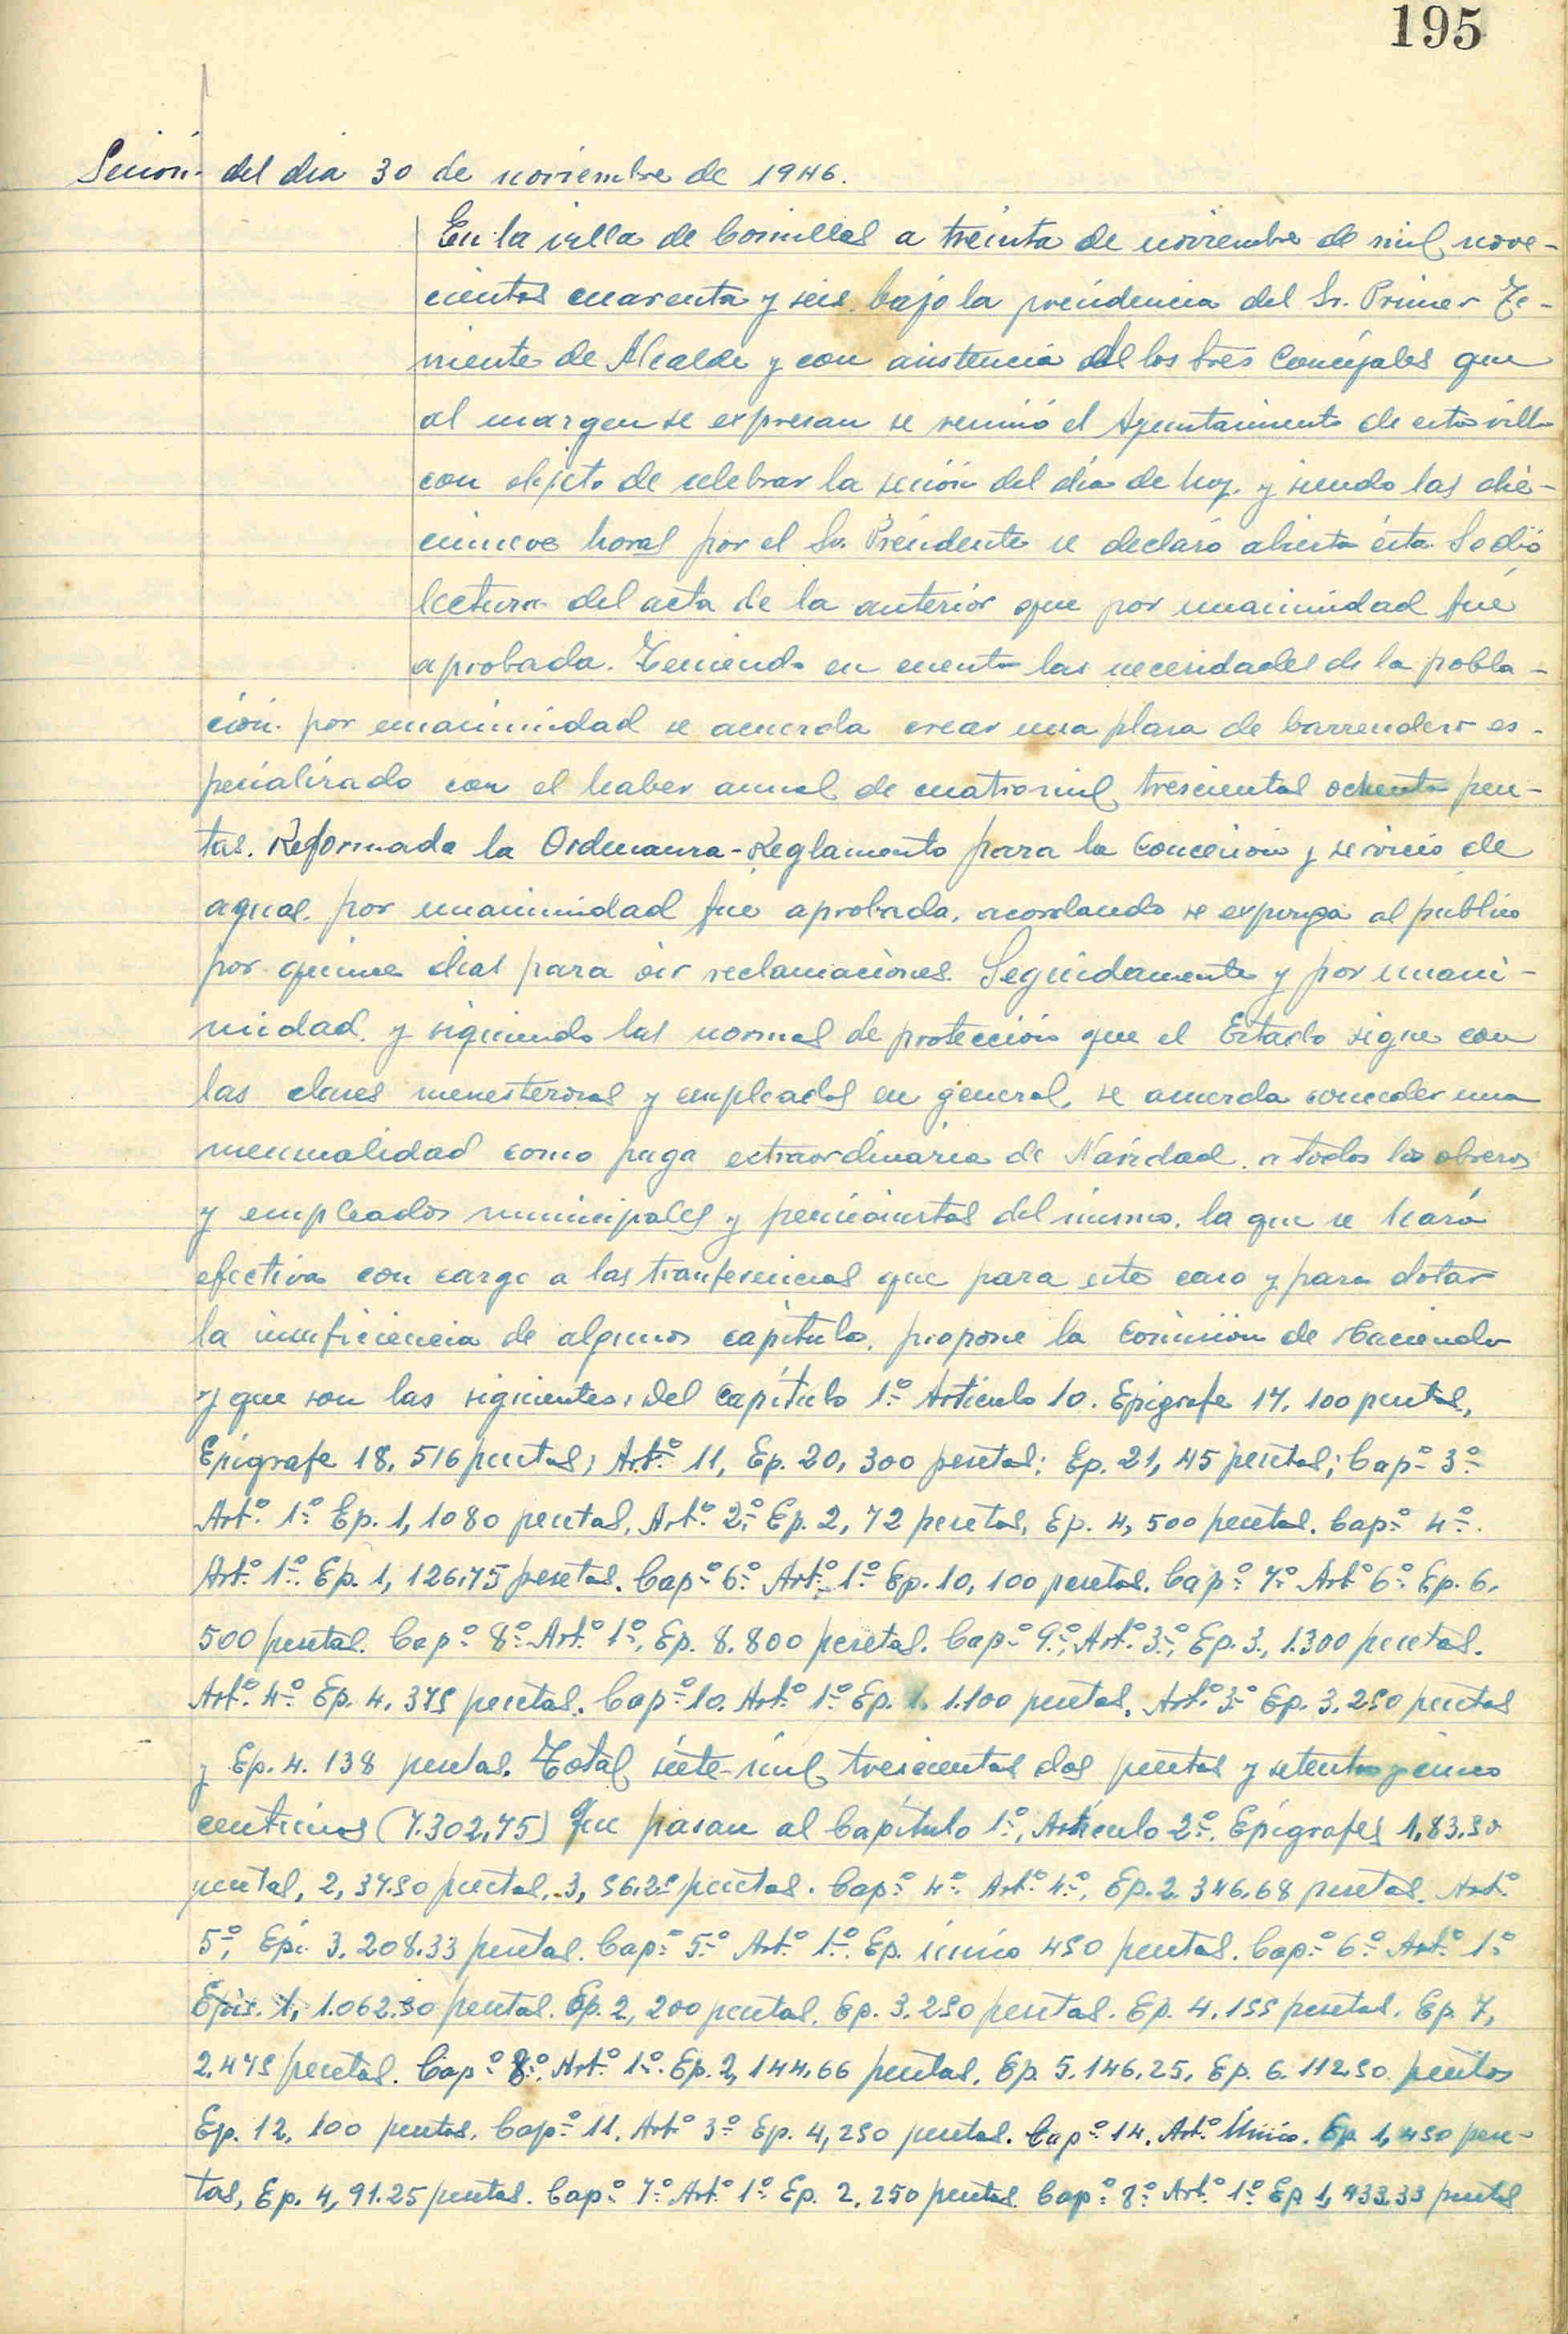 195
Sesión del dia 30 de noviembre de 1946.
En la villa de Comillas a treinta de noviembre de mil nove-
cientos cuarenta y seis bajo la presidencia del Sr. Primer Te-
niente de Alcalde y con asistencia de los tres Concejales que
al margen se expresan se reunió el Ayuntamiento de esta villa
con objeto de celebrar la sesión del día de hoy. y siendo las die-
cinueve horas por el Sr. Presidente se declaró abierta ésta. Se dió
lectura del acta de la anterior que por unanimidad fué
aprobada. Teniendo en cuenta las necesidades de la pobla-
ción. por unanimidad se acuerda crear una plaza de barrendero es-
pecializado con el haber anual de cuatro mil trescientas ochenta pese-
tas. Reformada la Ordenanza-Reglamento para la concesión y servicio de
aguas. por unanimidad fué aprobada, acordando se exponga al público
por quince dias para oir reclamaciones. Seguidamente y por unani-
midad. y siguiendo las normas de protección que el Estado sigue con
las clases menesterosas y empleados en general, se acuerda conceder una
mensualidad como paga extraordinaria de Navidad. a todos los obreros
y empleados municipales y pensionistas del mismo, la que se hará
efectiva con cargo a las tranferencias que para este caso y para dotar
la insuficiencia de algunos capítulos, propone la Comisión de Hacienda
y que son las siguientes: del Capítulo 1º Artículo 10. Epígrafe 17, 100 pesetas,
Epígrafe 18, 516 pesetas; Artº 11, Ep. 20, 300 pesetas; Ep. 21, 45 pesetas; Capº 3º
Artº 1º Ep. 1, 1080 pesetas, Artº 2º Ep. 2, 72 pesetas, Ep. 4, 500 pesetas. Capº 4º.
Artº 1º. Ep. 1, 126,75 pesetas. Capº 6º Artº 1º Ep. 10, 100 pesetas. Capº 7º Artº 6º Ep. 6.
500 pesetas. Capº 8º Artº 1º, Ep. 8. 800 pesetas. Capº 9º, Artº 3º, Ep. 3., 1.300 pesetas.
Artº 4º Ep. 4. 375 pesetas. Capº 10. Artº 1º Ep. 1. 1.100 pesetas. Artº 3º Ep. 3. 250 pesetas
y Ep. 4. 138 pesetas. Total siete mil trescientas dos pesetas y setenta y cinco
centimos (7.302,75) Que pasan al Capítulo 1º, Artículo 2º. Epígrafes 1, 83.30
pesetas, 2, 37.50 pesetas. 3, 56.25 pesetas. Capº 4º Artº 4º, Ep. 2. 346.68 pesetas. Artº
5º, Epi. 3. 208.33 pesetas. Capº 5º Artº 1º. Ep. único 450 pesetas. Capº 6º Artº 1º
1, 1.062.50 pesetas. Ep. 2, 200 pesetas. Ep. 3. 250 pesetas. Ep. 4. 155 pesetas. Ep. 7,
2.475 pesetas. Capº 8º, Artº 1º. Ep. 2, 144,66 pesetas, Ep. 5. 146.25, Ep. 6. 112.50 pesetas
Ep. 12. 100 pesetas. Capº 11. Artº 3º Ep. 4, 250 pesetas. Capº 14. Artº Único. Ep. 1, 450 pese-
tas, Ep. 4, 91.25 pesetas. Capº 7º Artº 1º Ep. 2, 250 pesetas. Capº 8º Artº 1º Ep 1, 433.33 pesetas